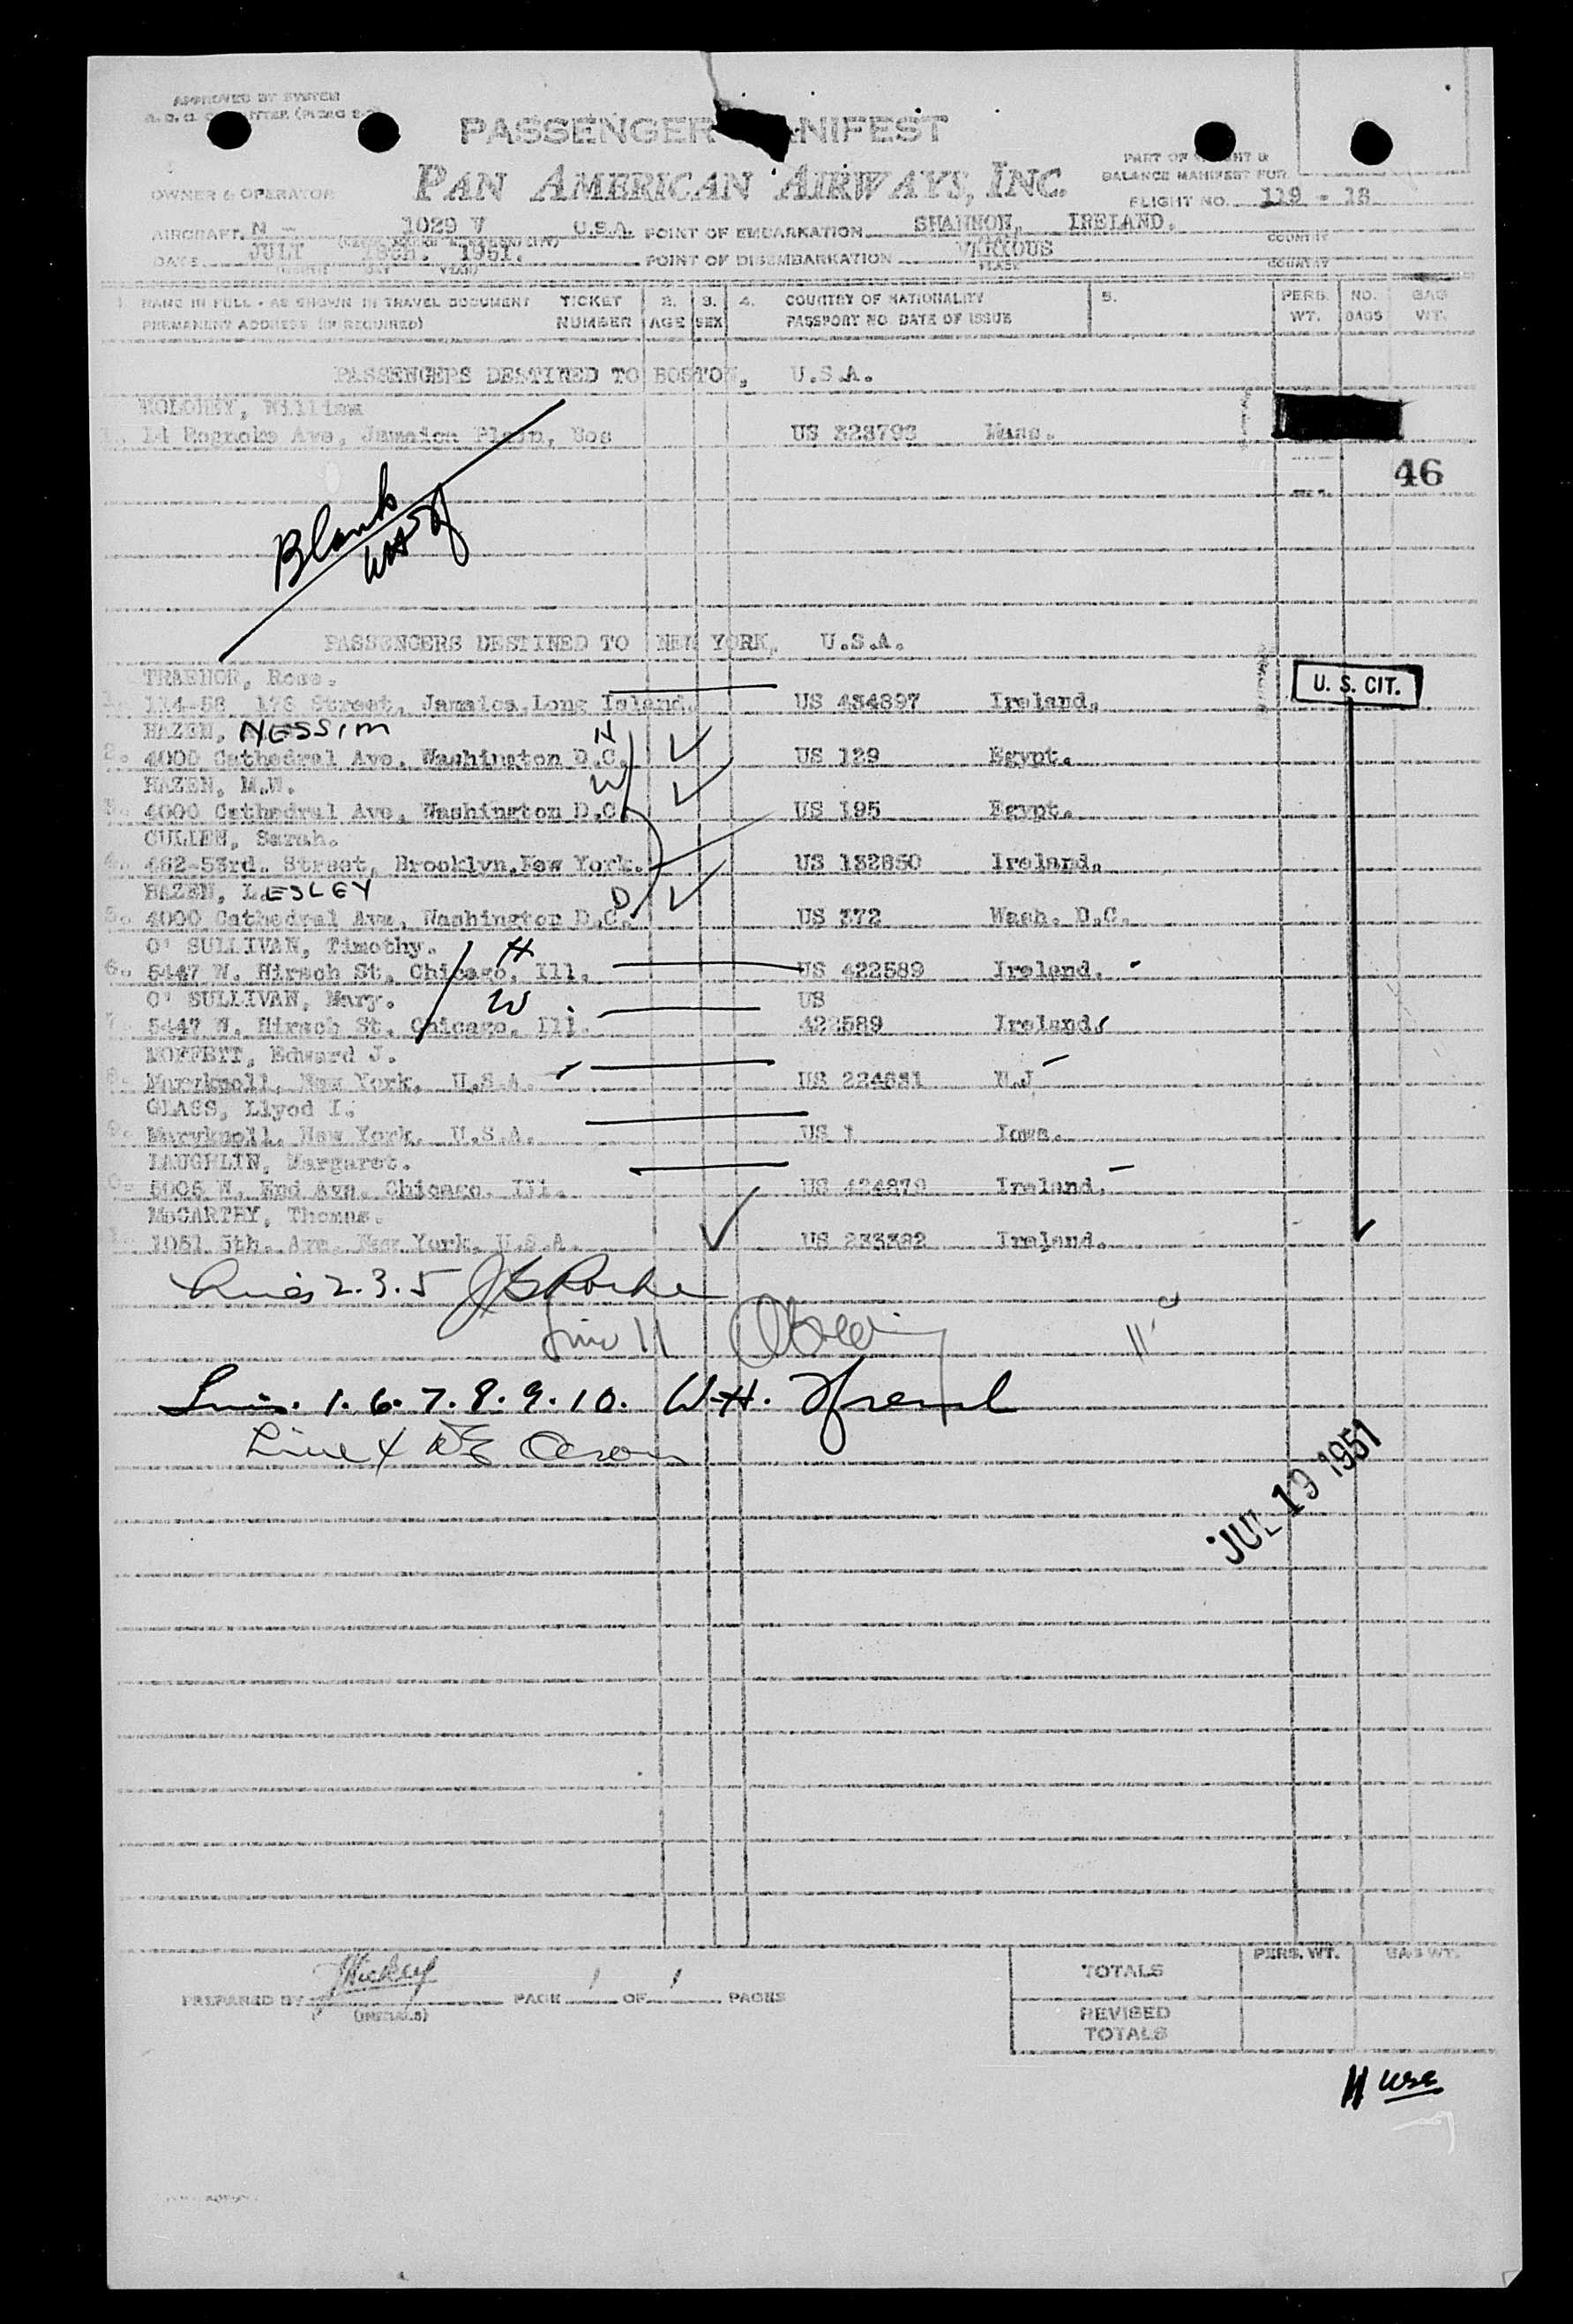 APPROVED BY SYSTEM
PASSENGER MANIFEST
PAN AMERICAN AIRWAYS, INC.
PART OF WEIGHT &
BALANCE MANIFEST FOR
FLIGHT NO. 119 - 18
OWNER & OPERATOR
AIRCRAFT N - 1029 V U.S.A. POINT OF EMBARKATION SHANNON, IRELAND.
COUNTRY
DATE JULY 18th. 1951. POINT OF DISEMBARKATION VARIOUS
(MONTH DAY YEAR) PLACE COUNTRY
1. NAME IN FULL - AS SHOWN IN TRAVEL DOCUMENT TICKET 2. 3. 4. COUNTRY OF NATIONALITY 5. PERS. NO. BAG
PERMANENT ADDRESS (IF REQUIRED) NUMBER AGE SEX PASSPORT NO DATE OF ISSUE WT. BAGS WT.
PASSENGERS DESTINED TO BOSTON, U.S.A.
MOLONEY, William
1. 14 Ave, Jamaica Plain, Bos US 323793 Mass.
46
Blank
PASSENGERS DESTINED TO NEW YORK, U.S.A.
TRAENOR, Rose.
1. 114-58 178 Street, Jamaica, Long Island. US 434897 Ireland.
U. S. CIT.
HAZEN, NESSIM
2. 4000 Cathedral Ave, Washington D.C. US 129 Egypt.
HAZEN, M.W. W
3. 4000 Cathedral Ave, Washington D.C. US 195 Egypt.
CULLEN, Sarah.
4. 462-53rd. Street, Brooklyn, New York. US 132850 Ireland.
HAZEN, LESLEY D
5. 4000 Cathedral Ave, Washington D.C. US 372 Wash. D.C.
O' SULLIVAN, Timothy. H
6. 5447 W. Hirsch St, Chicago, Ill. US 422589 Ireland.
O' SULLIVAN, Mary. W US
7. 5447 W. Hirsch St, Chicago, Ill. 422589 Ireland.
MOFFETT, Edward J.
8. Maryknoll, New York, U.S.A. US 224631 N.J
GLASS, Llyod I.
9. Maryknoll, New York, U.S.A. US 1 Iowa.
LAUGHLIN, Margaret.
0. 5005 W. End Ave, Chicago, Ill. US 424879 Ireland.
McCARTHY, Thomas.
1. 1051 5th. Ave, New York, U.S.A. US 233382 Ireland.
Lines 2.3.5
Line 11
Lines. 1. 6. 7. 8. 9. 10. W.H.
Line 4
JUL 19 1951
PREPARED BY JHickey PAGE 1 OF 1 PAGES
(INITIALS)
PERS. WT. BAG WT.
TOTALS
REVISED
TOTALS
11 usc